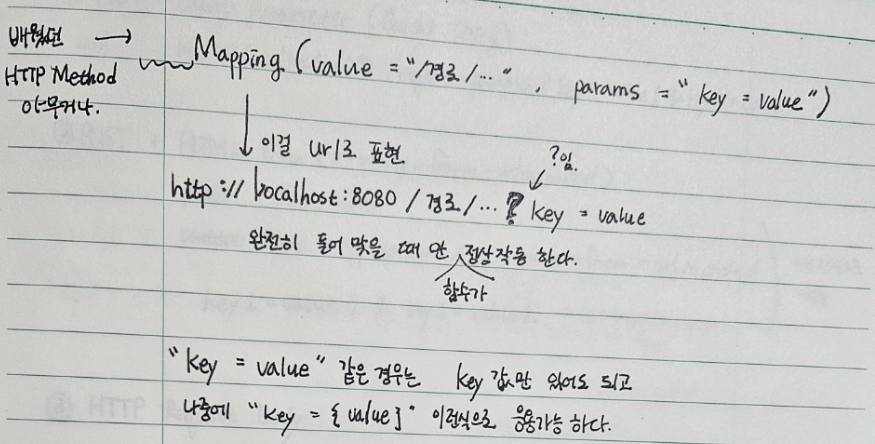 배웠던 →
HTTP Method
아무거나.
Mapping (value = "/경로/...", params = "key = value")
↓ 이걸 url로 표현
?임.
http://localhost:8080/경로/...? key = value
완전히 들어 맞을 때 만 정상작동 한다.
함수가
"key = value" 같은 경우는 key 값만 있어도 되고
나중에 "key = {value}" 이런식으로 응용가능 하다.